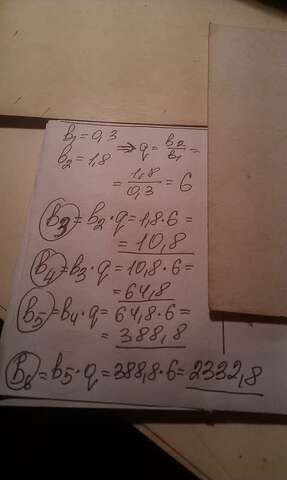 b₁ = 0,3
b₂ = 1,8 ⇒ q = b₂/b₁ =
= 1,8/0,3 = 6
b₃ = b₂ · q = 1,8 · 6 =
= 10,8
b₄ = b₃ · q = 10,8 · 6 =
= 64,8
b₅ = b₄ · q = 64,8 · 6 =
= 388,8
b₆ = b₅ · q = 388,8 · 6 = 2332,8